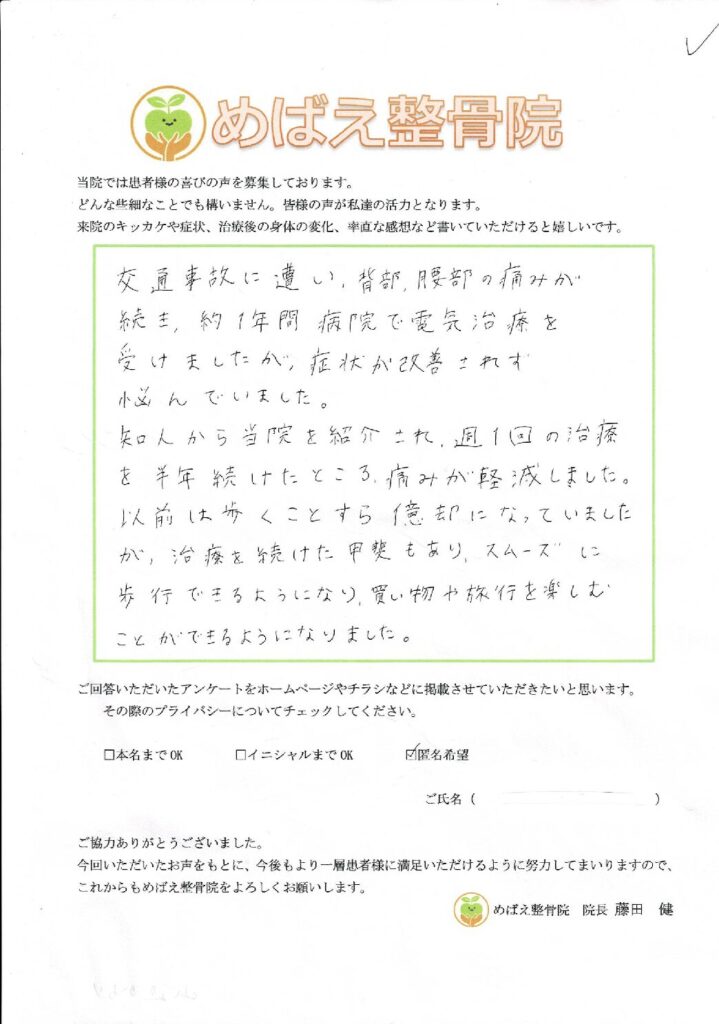 めばえ整骨院
当院では患者様の喜びの声を募集しております。
どんな些細なことでも構いません。皆様の声が私達の活力となります。
来院のキッカケや症状、治療後の身体の変化、率直な感想など書いていただけると嬉しいです。
交通事故に遭い、背部、腰部の痛みが
続き、約1年間 病院で電気治療を
受けましたが、症状が改善されず
悩んでいました。
知人から当院を紹介され、週1回の治療
を半年続けたところ、痛みが軽減しました。
以前は歩くことすら億却になっていました
が、治療を続けた甲斐もあり、スムーズに
歩行できるようになり、買い物や旅行を楽しむ
ことができるようになりました。
ご回答いただいたアンケートをホームページやチラシなどに掲載させていただきたいと思います。
その際のプライバシーについてチェックしてください。
□本名までOK □イニシャルまでOK ☑匿名希望
ご氏名（ ）
ご協力ありがとうございました。
今回いただいたお声をもとに、今後もより一層患者様に満足いただけるように努力してまいりますので、
これからもめばえ整骨院をよろしくお願いします。
めばえ整骨院 院長 藤田 健